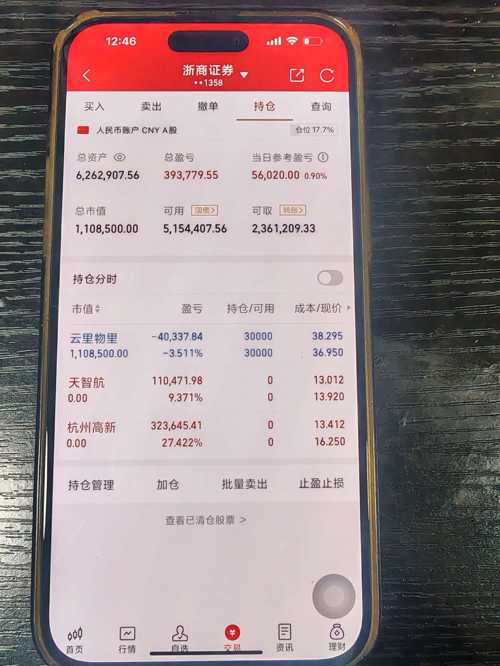 12:46
浙商证券 ▼
••1358
买入 卖出 撤单 持仓 查询
人民币账户 CNY A股 仓位 17.7%
总资产 总盈亏 当日参考盈亏
6,262,907.56 393,779.55 56,020.00 0.90%
总市值 可用 国债> 可取 转账>
1,108,500.00 5,154,407.56 2,361,209.33
持仓分时
市值 盈亏 持仓/可用 成本/现价
云里物里 -40,337.84 30000 38.295
1,108,500.00 -3.511% 30000 36.950
天智航 110,471.98 0 13.012
0.00 9.371% 0 13.920
杭州高新 323,645.41 0 13.412
0.00 27.422% 0 16.250
持仓管理 加仓 批量卖出 止盈止损
查看已清仓股票 >
首页 行情 自选 交易 资讯 理财